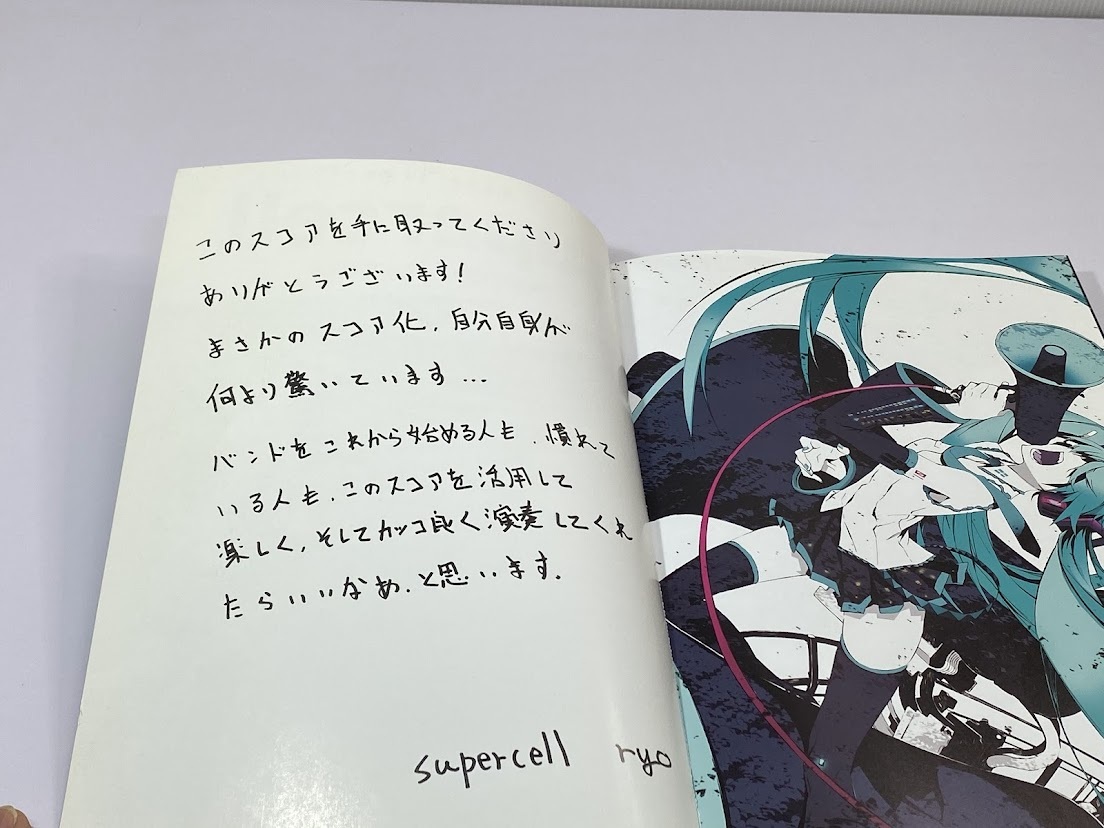 このスコアを手に取ってくださり
ありがとうございます!
まさかのスコア化、自分自身が
何より驚いています…
バンドをこれから始める人も、慣れて
いる人も、このスコアを活用して
楽しく、そしてカッコ良く演奏してくれ
たらいいなぁ、と思います。
supercell ryo